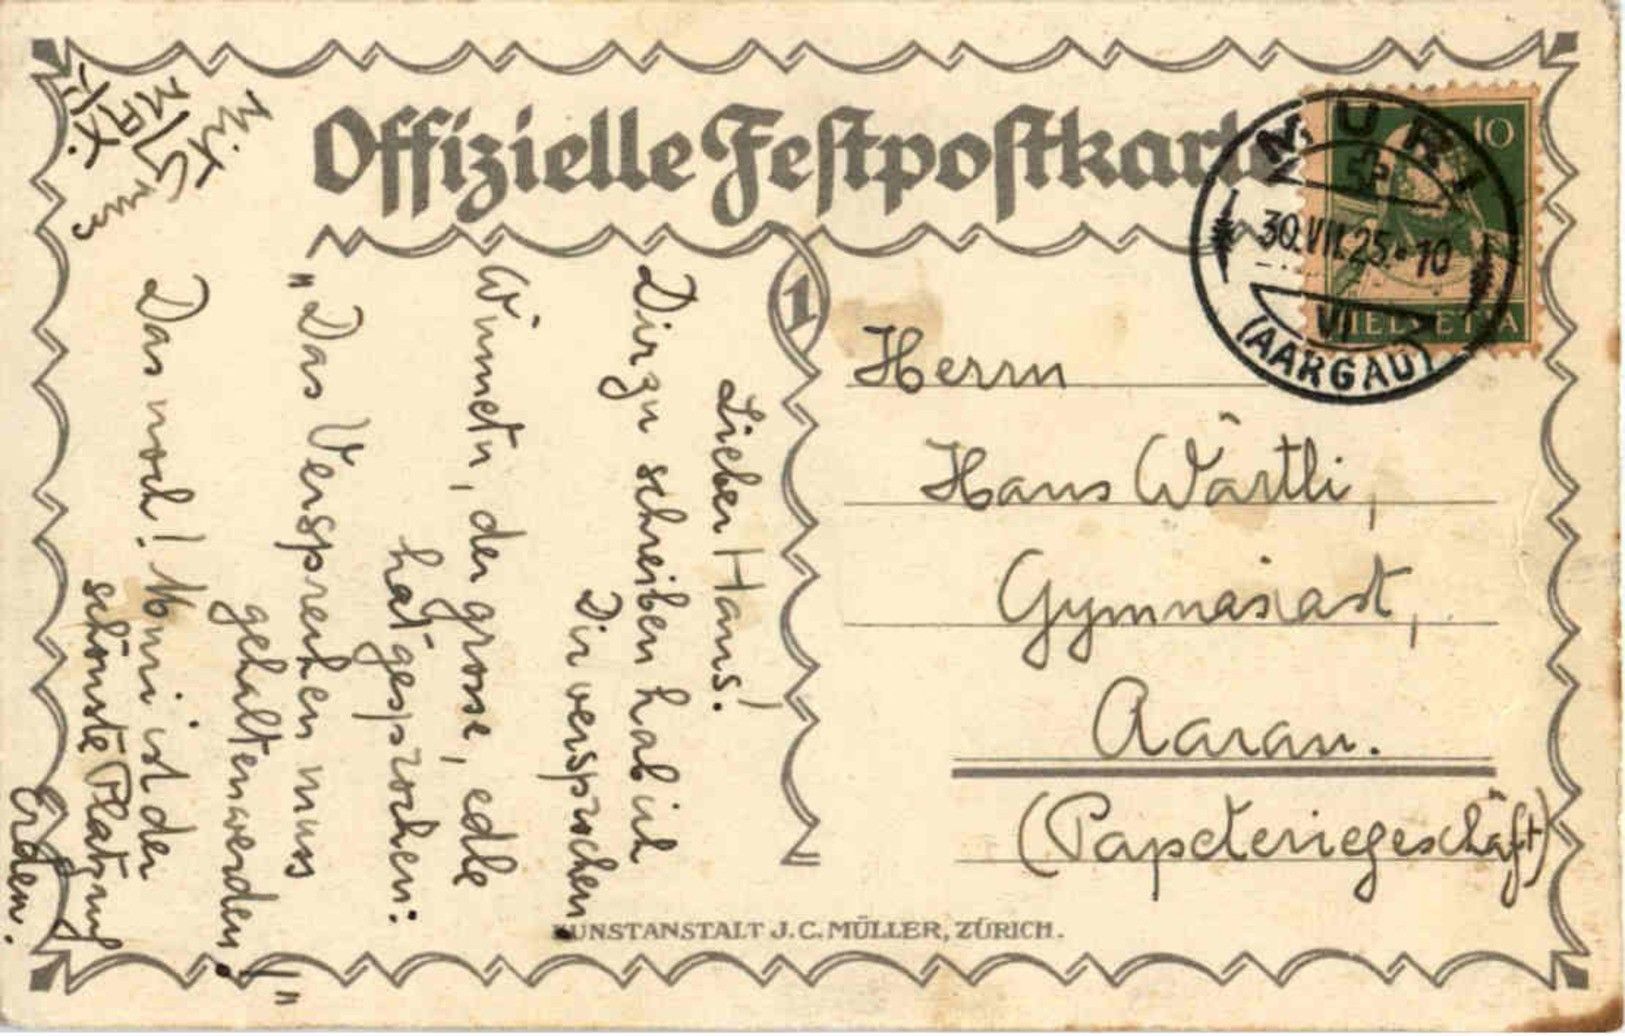 Offizielle Festpostkarte
MURI
30.VII.25.-10
VI
(AARGAU)
10
HELVETIA
1
Herrn
Hans Wärtli,
Gymnasiast,
Aarau.
(Papeteriegeschäft)
Lieber Hans!
Dir zu schreiben hab ich
Dir versprochen
Winnetu, der grosse, edle
hat gesprochen:
„Das Versprechen muss
gehalten werden!"
Das noch! Muri ist der
schönste Platz auf
Erden.
Mit Gruss
MAX.
KUNSTANSTALT J.C. MÜLLER, ZÜRICH.